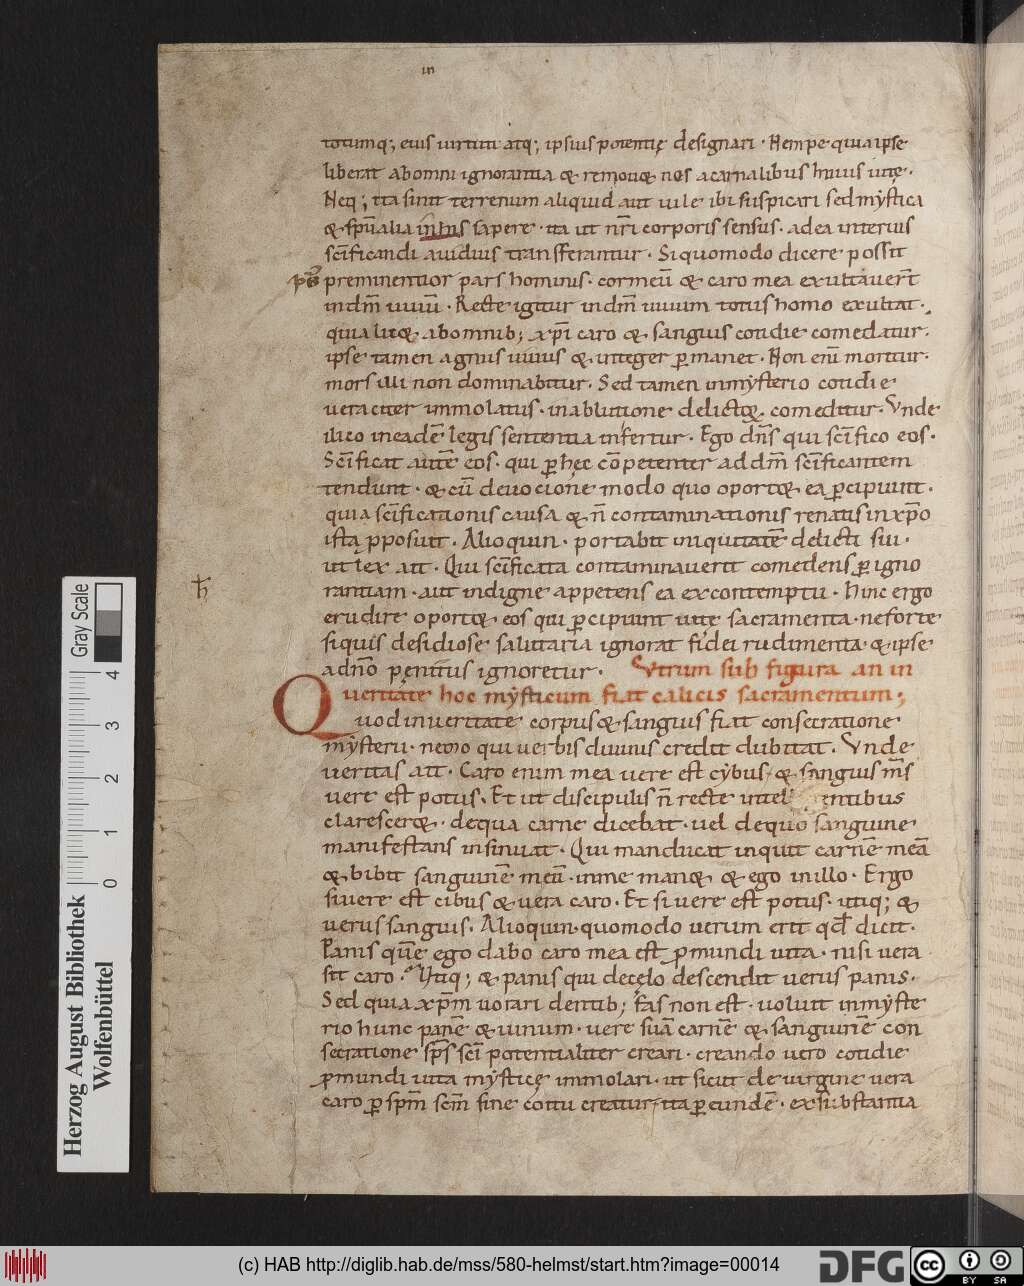 in
totumq; eius uirtuti atq; ipsius potentię designari · Nempe quia ipse
liberat ab omni ignorantia & remouet nos a carnalibus huius uitę.
Neq; ita sinit terrenum aliquid aut uile ibi suspicari sed mystica
& spūalia in his sapere · ita ut nr̄i corporis sensus · ad ea interius
scīficandi auidius transferantur · Si quomodo dicere possit
preminentior pars hominis · cor meū & caro mea exultauer̄t
in dm̄ uiuū · Recte igitur in dm̄ uiuum totus homo exultat ·
quia licet ab omnib; xp̄i caro & sanguis cotidie comedatur ·
ipse tamen agnus uiuus & integer ꝑmanet · Non enī moritur ·
mors illi non dominabitur · Sed tamen in mysterio cotidie
ueraciter immolatus · in ablutione delictoꝝ comeditur · Vnde
ilico in eadē legis sententia infertur · Ego dn̄s qui scīfico eos ·
Scīficat autē eos · qui ꝑ hęc cōpetenter ad dm̄ scīficantem
tendunt · & cū deuocione modo quo oportet ea ꝑcipiunt ·
quia scīficationis causa & n̄ contaminationis renatis in xp̄o
ista ꝓposuit · Alioquin · portabit iniquitatē delicti sui ·
ut lex ait · Qui scīficata contaminauerit comedens ꝑ igno
rantiam · aut indigne appetens ea ex contemptu · hinc ergo
erudire oportet eos qui ꝑcipiunt uitę sacramenta · ne forte
si quis desidiose salutaria ignorat fidei rudimenta · & ipse
a dn̄o pęnitus ignoretur · Vtrum sub figura an in
ueritate hoc mysticum fiat calicis sacramentum;
Quod in ueritate corpus & sanguis fiat consecratione
mysterii · nemo qui uerbis diuinis credit dubitat · Vnde
ueritas ait · Caro enim mea uere est cybus · & sanguis m̄s
uere est potus · Et ut discipulis n̄ recte intelligentibus
claresceret · de qua carne dicebat · uel de quo sanguine
manifestans insinuat · Qui manducat inquit carnē meā
& bibit sanguinē meū · in me manet & ego in illo · Ergo
si uere est cibus & uera caro · Et si uere est potus · utiq; &
uerus sanguis · Alioquin · quomodo uerum erit qd̄ dicit ·
Panis quē ego dabo caro mea est ꝓ mundi uita · nisi uera
sit caro? Vtiq; & panis qui de cęlo descendit uerus panis ·
Sed quia xp̄m uorari dentib; fas non est · uoluit in myste
rio hunc panē & uinum · uere suā carnē & sanguinē con
secratione sp̄s scī potentialiter creari · creando uero cotidie
ꝓ mundi uita mysticę immolari · ut sicut de uirgine uera
caro ꝑ sp̄m scm̄ sine coitu creatur · ita ꝑ eundē · ex substantia
Gray Scale
0 1 2 3 4
Herzog August Bibliothek
Wolfenbüttel
(c) HAB http://diglib.hab.de/mss/580-helmst/start.htm?image=00014
DFG
cc
BY SA